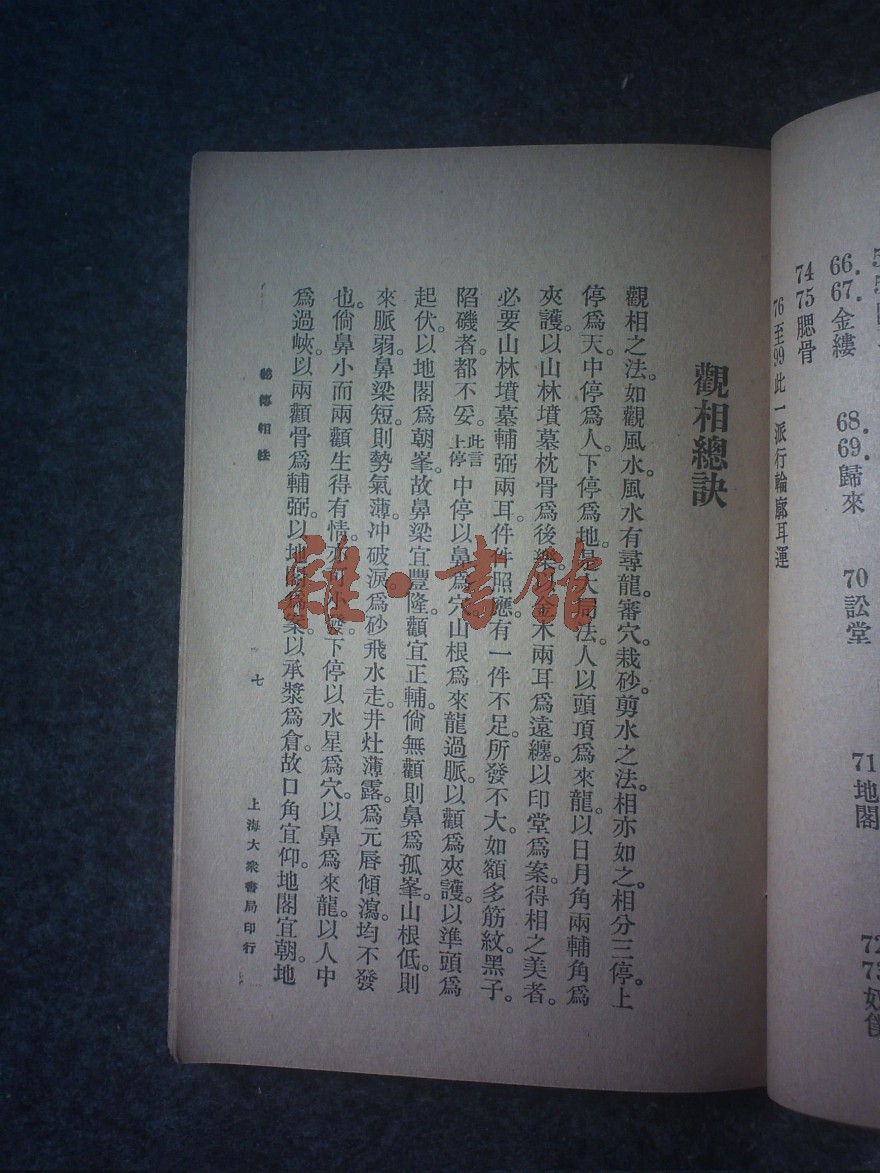 66.
67.金縷
68.
69.歸來
70訟堂
71地閣
72
74
75腮骨
76至99此一派行輪廓耳運
觀相總訣
觀相之法。如觀風水。風水有尋龍。審穴。栽砂。剪水之法。相亦如之。相分三停。上
停爲天。中停爲人。下停爲地。是大局法。人以頭頂爲來龍。以日月角兩輔角爲
夾護。以山林墳墓枕骨爲後樂。以金木兩耳爲遠纏。以印堂爲案。得相之美者。
必要山林墳墓輔弼兩耳件件照應。有一件不足。所發不大。如額多筋紋。黑子。
陷磯者。都不妥。此言上停中停以鼻爲穴。山根爲來龍過脈。以顴爲夾護。以準頭爲
起伏。以地閣爲朝峯。故鼻梁宜豐隆。顴宜正輔。倘無顴則鼻爲孤峯。山根低。則
來脈弱。鼻梁短。則勢氣薄。冲破淚。爲砂飛水走。井灶薄露。爲元唇傾瀉。均不發
也。倘鼻小而兩顴生得有情。亦可小發。下停以水星爲穴。以鼻爲來龍。以人中
爲過峽。以兩顴骨爲輔弼。以地閣爲案。以承漿爲倉。故口角宜仰。地閣宜朝。地
秘傳相法
七
上海大衆書局印行
雜·書館